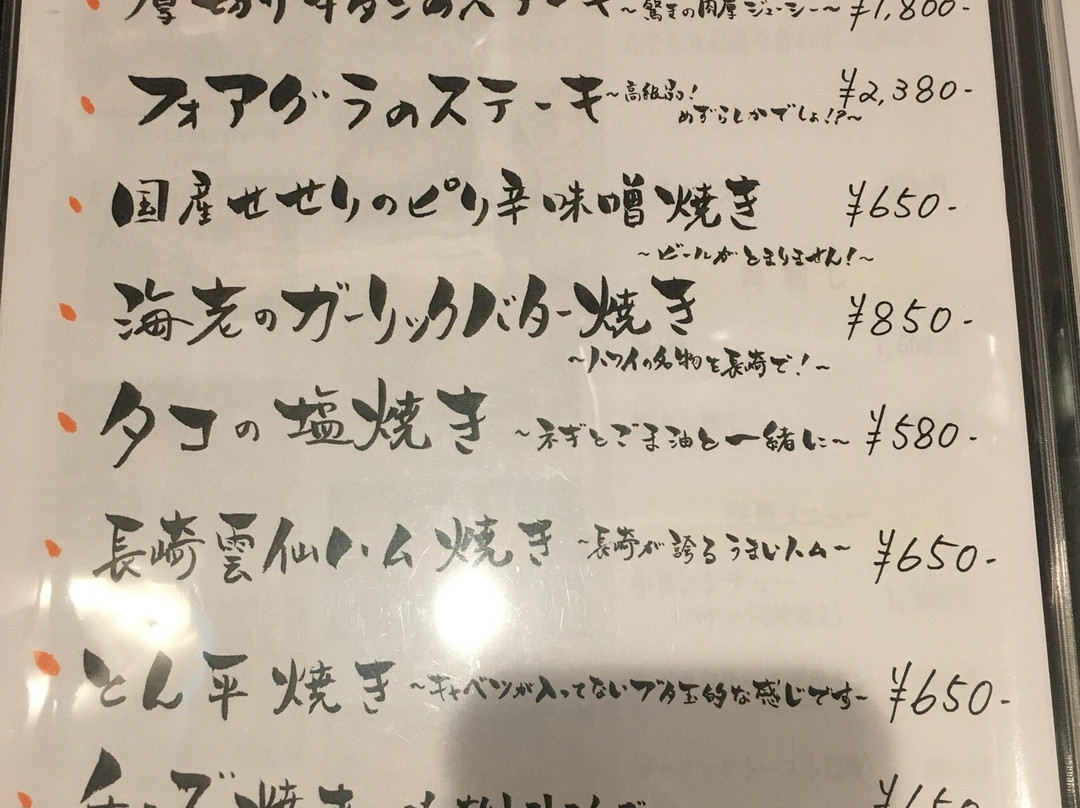 厚切り牛タンのステーキ ~驚きの肉厚ジューシー~ ¥1,800-
フォアグラのステーキ ~高級品! ¥2,380-
めずらしかでしょ!?~
国産せせりのピリ辛味噌焼き ¥650-
~ビールがとまりません!~
海老のガーリックバター焼き ¥850-
~ハワイの名物を長崎で!~
タコの塩焼き ~ネギとごま油と一緒に~ ¥580-
長崎雲仙ハム焼き ~長崎が誇るうまいハム~ ¥650-
とん平焼き ~キャベツが入ってないブタ玉的な感じです~ ¥650-
焼き ¥650